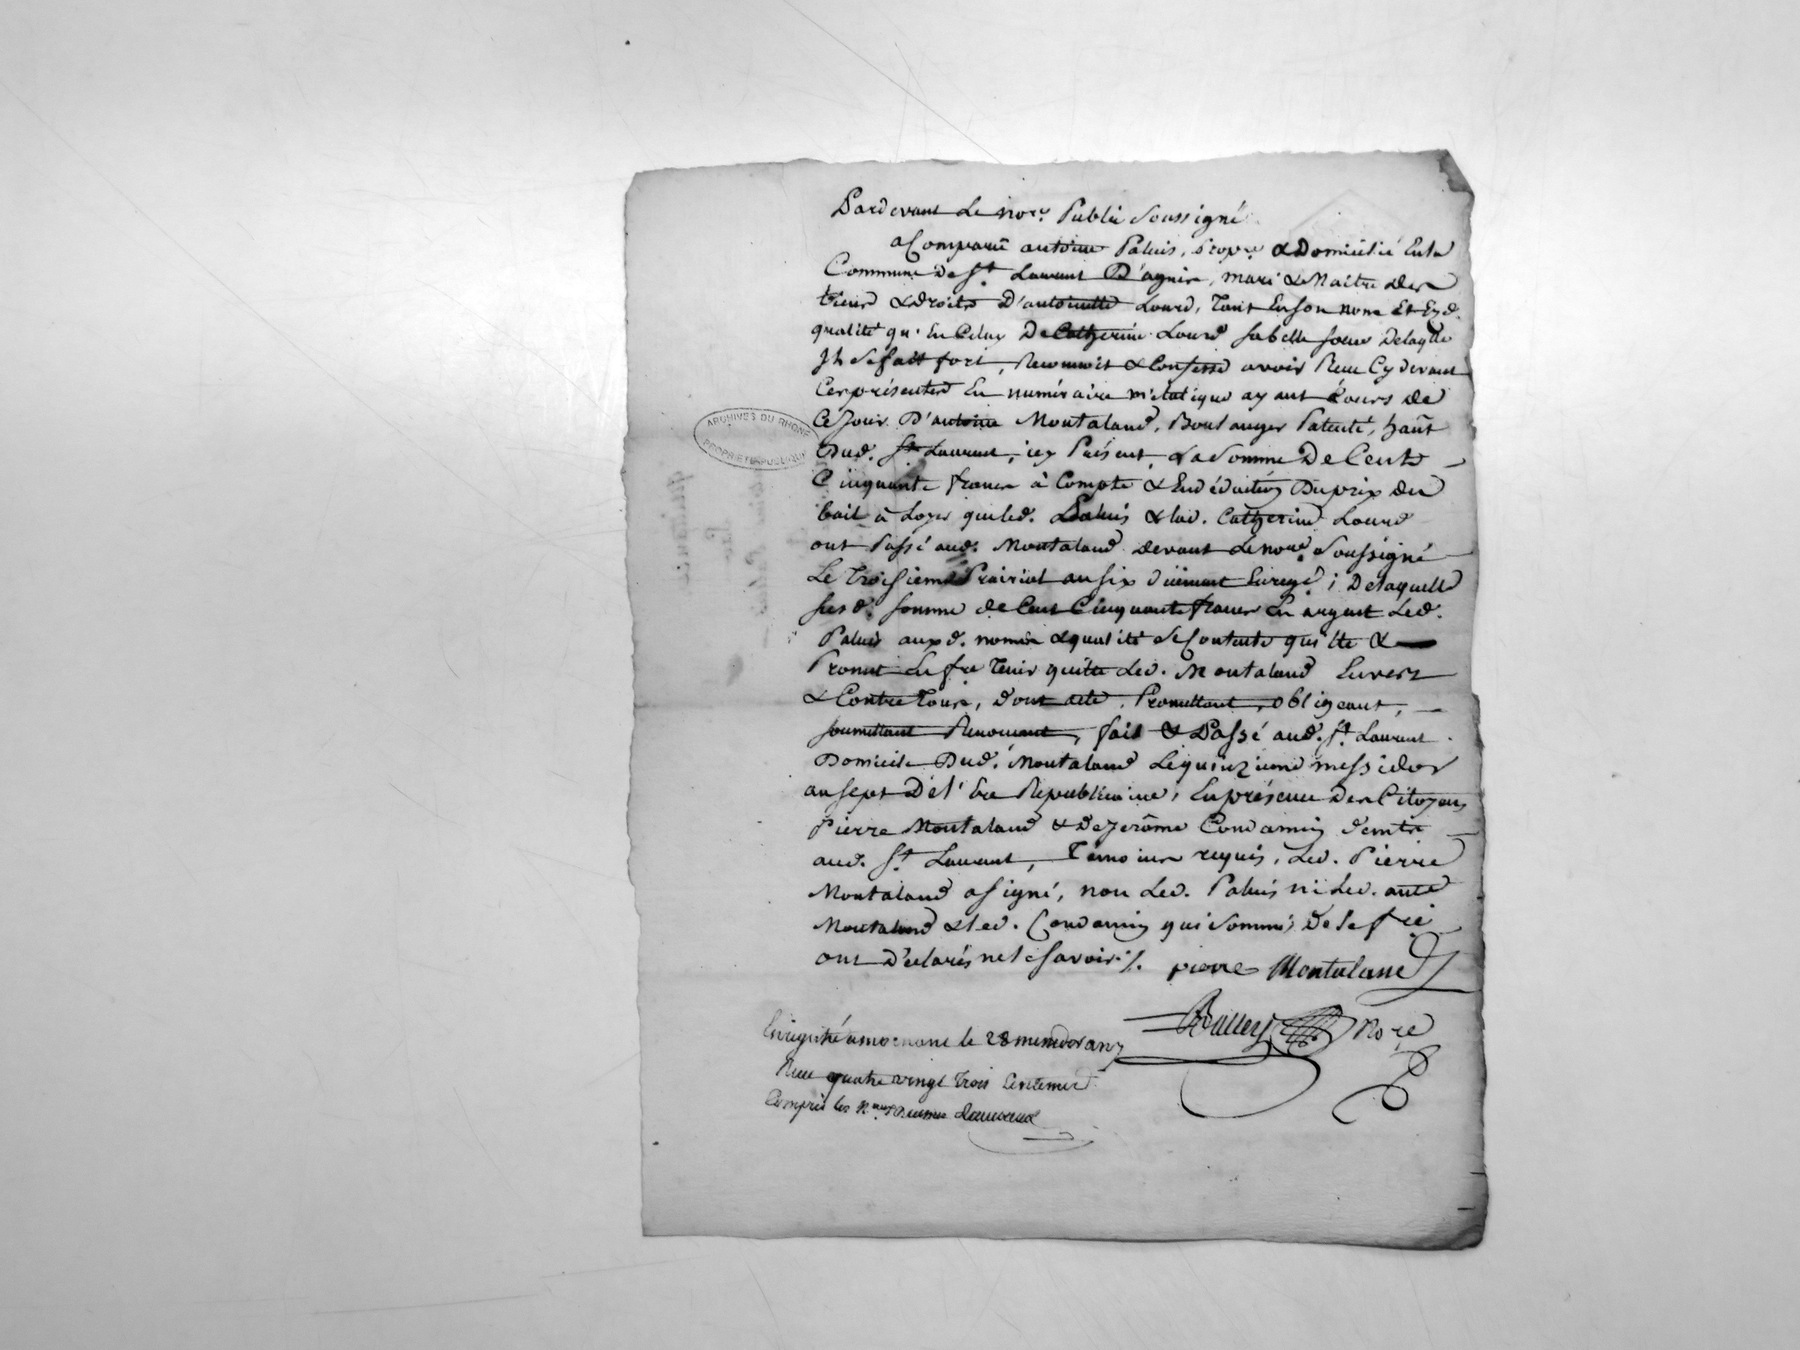 Pardevant Le nore. Public Soussigné
a Comparu antoine Paluis, propre. & Domicilié En la
Commune De St. Laurent D'agnin, mari & Maitre des
biens & droits D'antoinette Lourd, tant En son nom Et En
qualité qu'En Celuy De Catherine Lourd sa belle soeur De laqlle
Il se fait fort, Reconnoit & Confesse avoir Reçu Cy devant
Ces présentes En numéraire métalique ayant Cours de
Ce Jour D'antoine Montaland, Boulanger Patenté, hañt
Dud. St. Laurent, icy Présent, La Somme De Cents
Cinquante francs à Compte & En déduction Du prix du
bail à Loyer que led. Paluis & lad. Catherine Lourd
ont Passé aud. Montaland devant Le nore. Soussigné
Le Troisieme Prairial an six duëment Enregé; De laquelle
susd. somme de Cent Cinquante francs En argent Led.
Paluis auxd. noms & qualité se Contente quitte &
Promet Le fre tenir quitte Led. Montaland Envers
& Contre Tous, dont acte, Promettant, obligeant,
soumettant Renonçant, fait & Passé aud. St. Laurent
Domicile Dud. Montaland Le quinzieme messidor
an sept De l'Ere Republicaine, En présence Des Citoyens
Pierre Montaland & De Jerôme Condamin demts
aud. St. Laurent, Témoins requis, Led. Pierre
Montaland a signé, non Led. Paluis ni Led. ante
Montaland & led. Condamin qui Sommés De le fre
ont Déclarés ne le savoir./. pierre Montaland
Nore
Enregistré a mornant le 28 messidor an 7
Reçu quatre vingt Trois Centimes
Compris les
ARCHIVES DU RHONE
PROPRIETE PUBLIQUE